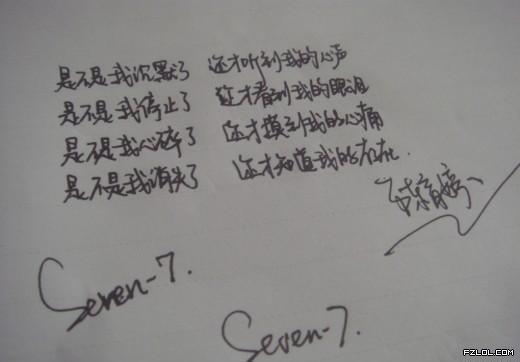 是不是我沉默了 你才听到我的心声
是不是我停止了 你才看到我的眼泪
是不是我心碎了 你才摸到我的心痛
是不是我消失了 你才知道我的存在.
Seven-7.
Seven-7.
PZLOL.COM